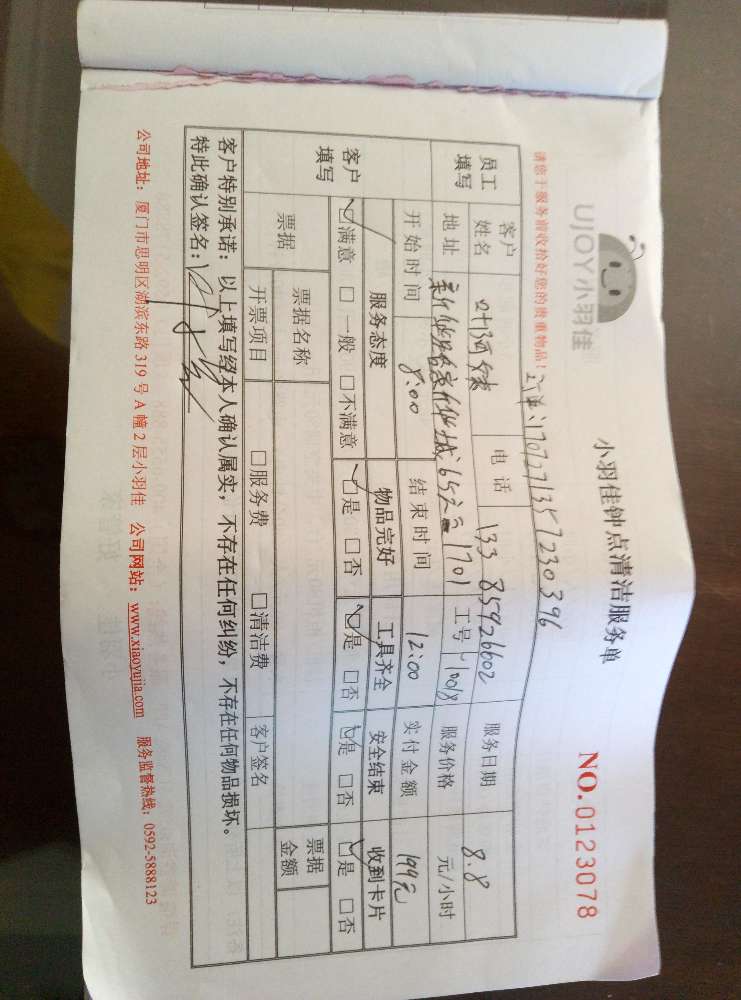 UJOY小羽佳
小羽佳钟点清洁服务单
NO.0123078
请您于服务前收拾好您的贵重物品!
订单:1707271357230396
员工填写
客户姓名 电话 13385926602 服务日期 8.8
地址 65 1701 工号 10018 服务价格 元/小时
开始时间 8:00 结束时间 12:00 实付金额 199元
客户填写
服务态度 物品完好 工具齐全 安全结束 收到卡片
☑满意 □一般 □不满意 ☑是 □否 ☑是 □否 ☑是 □否 ☑是 □否
票据 票据名称 票据金额
开票项目 □服务费 □清洁费 客户签名
客户特别承诺:以上填写经本人确认属实,不存在任何纠纷,不存在任何物品损坏。
特此确认签名:
公司地址:厦门市思明区湖滨东路319号A幢2层小羽佳 公司网站:www.xiaoyujia.com 服务监督热线:0592-5888123